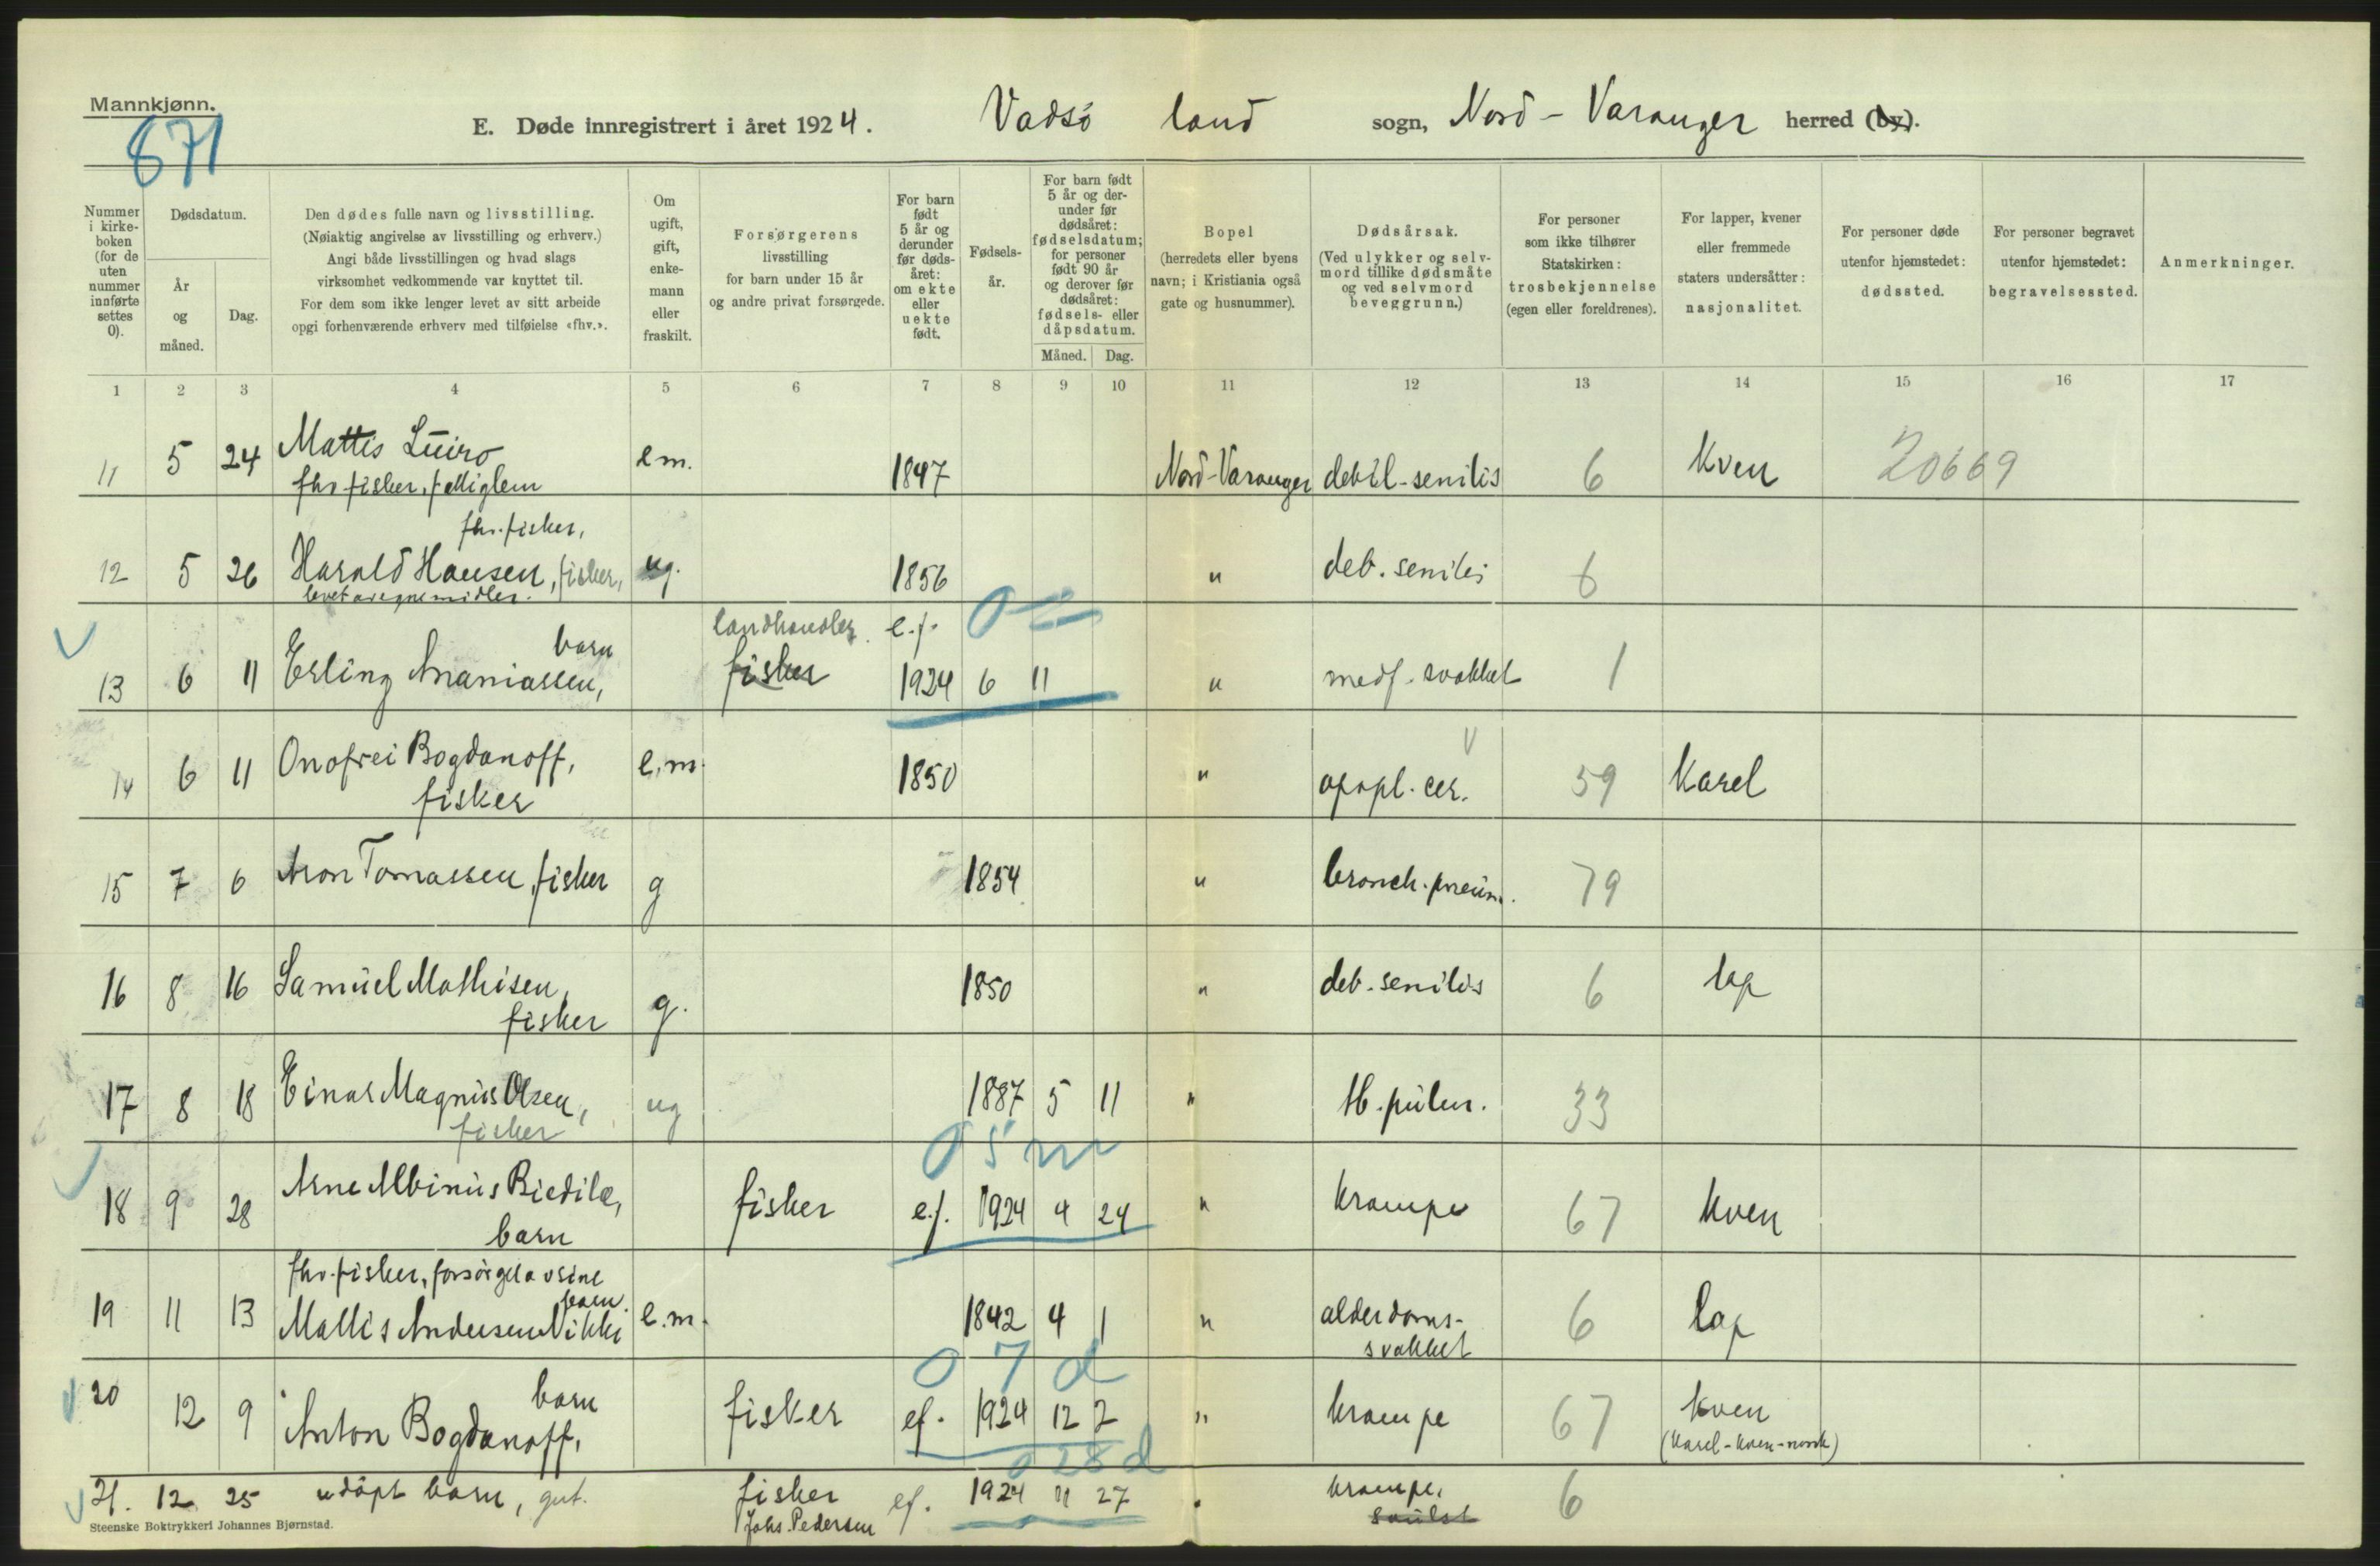 Mannkjønn.
871
E. Døde innregistrert i året 1924. Vadsö land sogn, Nord-Varanger herred (by).
Nummer i kirke-boken (for de uten nummer innførte settes 0).
Dødsdatum.
År og måned.
Dag.
Den dødes fulle navn og livsstilling.
(Nøiaktig angivelse av livsstilling og erhverv.)
Angi både livsstillingen og hvad slags
virksomhet vedkommende var knyttet til.
For dem som ikke lenger levet av sitt arbeide
opgi forhenværende erhverv med tilføielse «fhv.».
Om ugift, gift, enke-mann eller fraskilt.
Forsørgerens
livsstilling
for barn under 15 år
og andre privat forsørgede.
For barn født 5 år og derunder før døds-året: om ekte eller uekte født.
Fødsels-år.
For barn født 5 år og der-under før dødsåret: fødselsdatum; for personer født 90 år og derover før dødsåret: fødsels- eller dåpsdatum.
Måned. Dag.
Bopel
(herredets eller byens
navn; i Kristiania også
gate og husnummer).
Dødsårsak.
(Ved ulykker og selv-
mord tillike dødsmåte
og ved selvmord
beveggrunn.)
For personer
som ikke tilhører
Statskirken:
trosbekjennelse
(egen eller foreldrenes).
For lapper, kvener
eller fremmede
staters undersåtter:
nasjonalitet.
For personer døde
utenfor hjemstedet:
dødssted.
For personer begravet
utenfor hjemstedet:
begravelsessted.
Anmerkninger.
1 2 3 4 5 6 7 8 9 10 11 12 13 14 15 16 17
11 5 24 Mattis Luiro e m. 1847 Nord-Varanger debil-senilis 6 kven 20669
fhv fisker,
fhv. fisker,
12 5 26 Harald Hansen, fisker, ug. 1856 " deb. senilis 6
levet av egne midler.
landhandler e.f. 0
barn
13 6 11 Erling Ananiassen, fisker 1924 6 11 " medf. svakhet 1
14 6 11 Onofrei Bogdanoff, e.m. 1850 " apopl. cer. 59 karel
fisker
15 7 6 Aron Tomassen, fisker g 1854 " bronch. pneum. 79
16 8 16 Samuel Mathisen, g. 1850 " deb. senilis 6 lap
fisker
17 8 18 Einar Magnus Olsen, ug 1887 5 11 " tb. pulm. 33
fisker
0 5 m
18 9 28 Arne Albinus Biedilæ, fisker e.f. 1924 4 24 " krampe 67 kven
barn
fhv. fisker, forsörget av sine
barn.
19 11 13 Mattis Andersen Nikki e.m. 1842 4 1 " alderdoms- 6 lap
svakhet
0 7 d
20 barn
12 9 Anton Bogdanoff, fisker ef. 1924 12 2 " krampe 67 kven
(karel-kven-norsk)
0 28 d
21. 12 25 udöpt barn, gut. fisker ef. 1924 11 27 " krampe, 6
Johs. Pedersen
Steenske Boktrykkeri Johannes Bjørnstad.